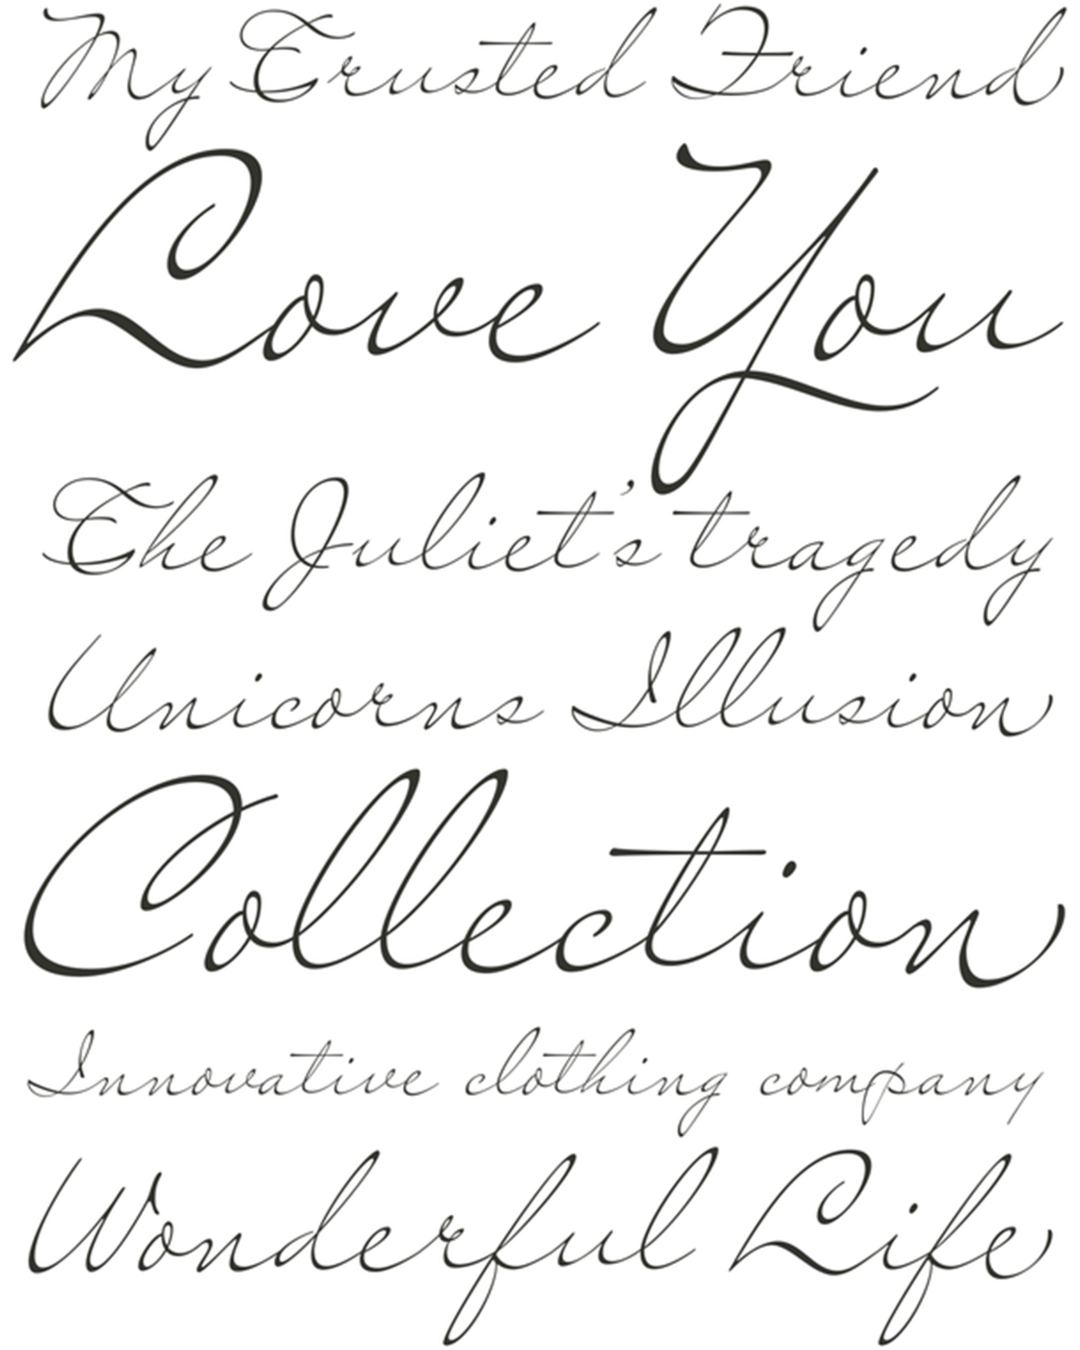 My Trusted Friend
Love You
The Juliet's tragedy
Unicorns Illusion
Collection
Innovative clothing company
Wonderful Life